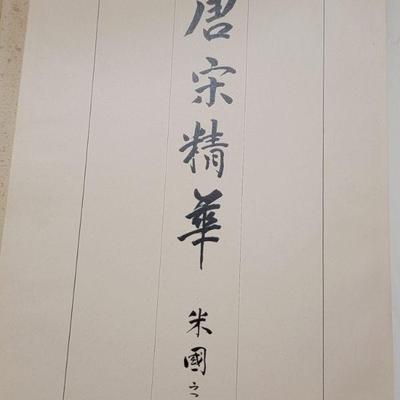 唐宋精華
米國之